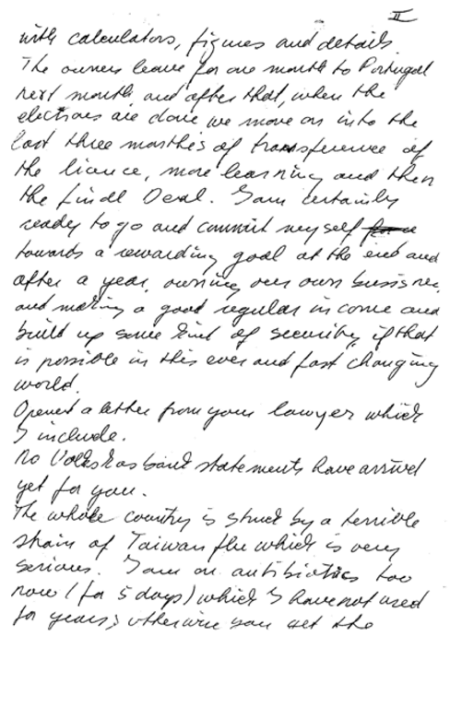 II
with calculators, figures and details.
The owners leave for one month to Portugal
next month, and after that, when the
elections are done we move on into the
last three months of transference of
the licence, more learning and then
the final Deal. I am certainly
ready to go and commit myself
towards a rewarding goal at the end and
after a year, owning our own bussines,
and making a good regular income and
build up some kind of security, if that
is possible in this ever and fast changing
world.
Opened a letter from your lawyer which
I include.
No Volkskas bank statements have arrived
yet for you.
The whole country is struck by a terrible
strain of Taiwan flu which is very
serious. I am on antibiotics too
now (for 5 days) which I have not used
for years; otherwise you get the